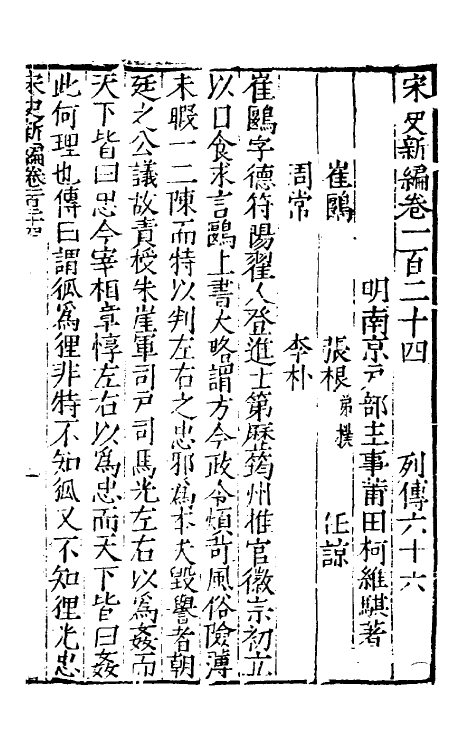 宋史新編卷一百二十四　列傳六十六
明南京戶部主事莆田柯維騏著
崔鶠　張根弟樸　任諒
周常　李朴
崔鷗字德符陽翟人登進士第歷筠州推官徽宗初立
以日食求言鷗上書大略謂方今政令煩苛風俗險薄
未暇一二陳而特以判左右之忠邪為本夫毀譽者朝
廷之公議故責授朱崖軍司戶司馬光左右以為姦而
天下皆曰忠今宰相章惇左右以為忠而天下皆曰姦
此何理也傳曰謂狐為狸非特不知狐又不知狸光忠
宋史新編卷一百二十四
一